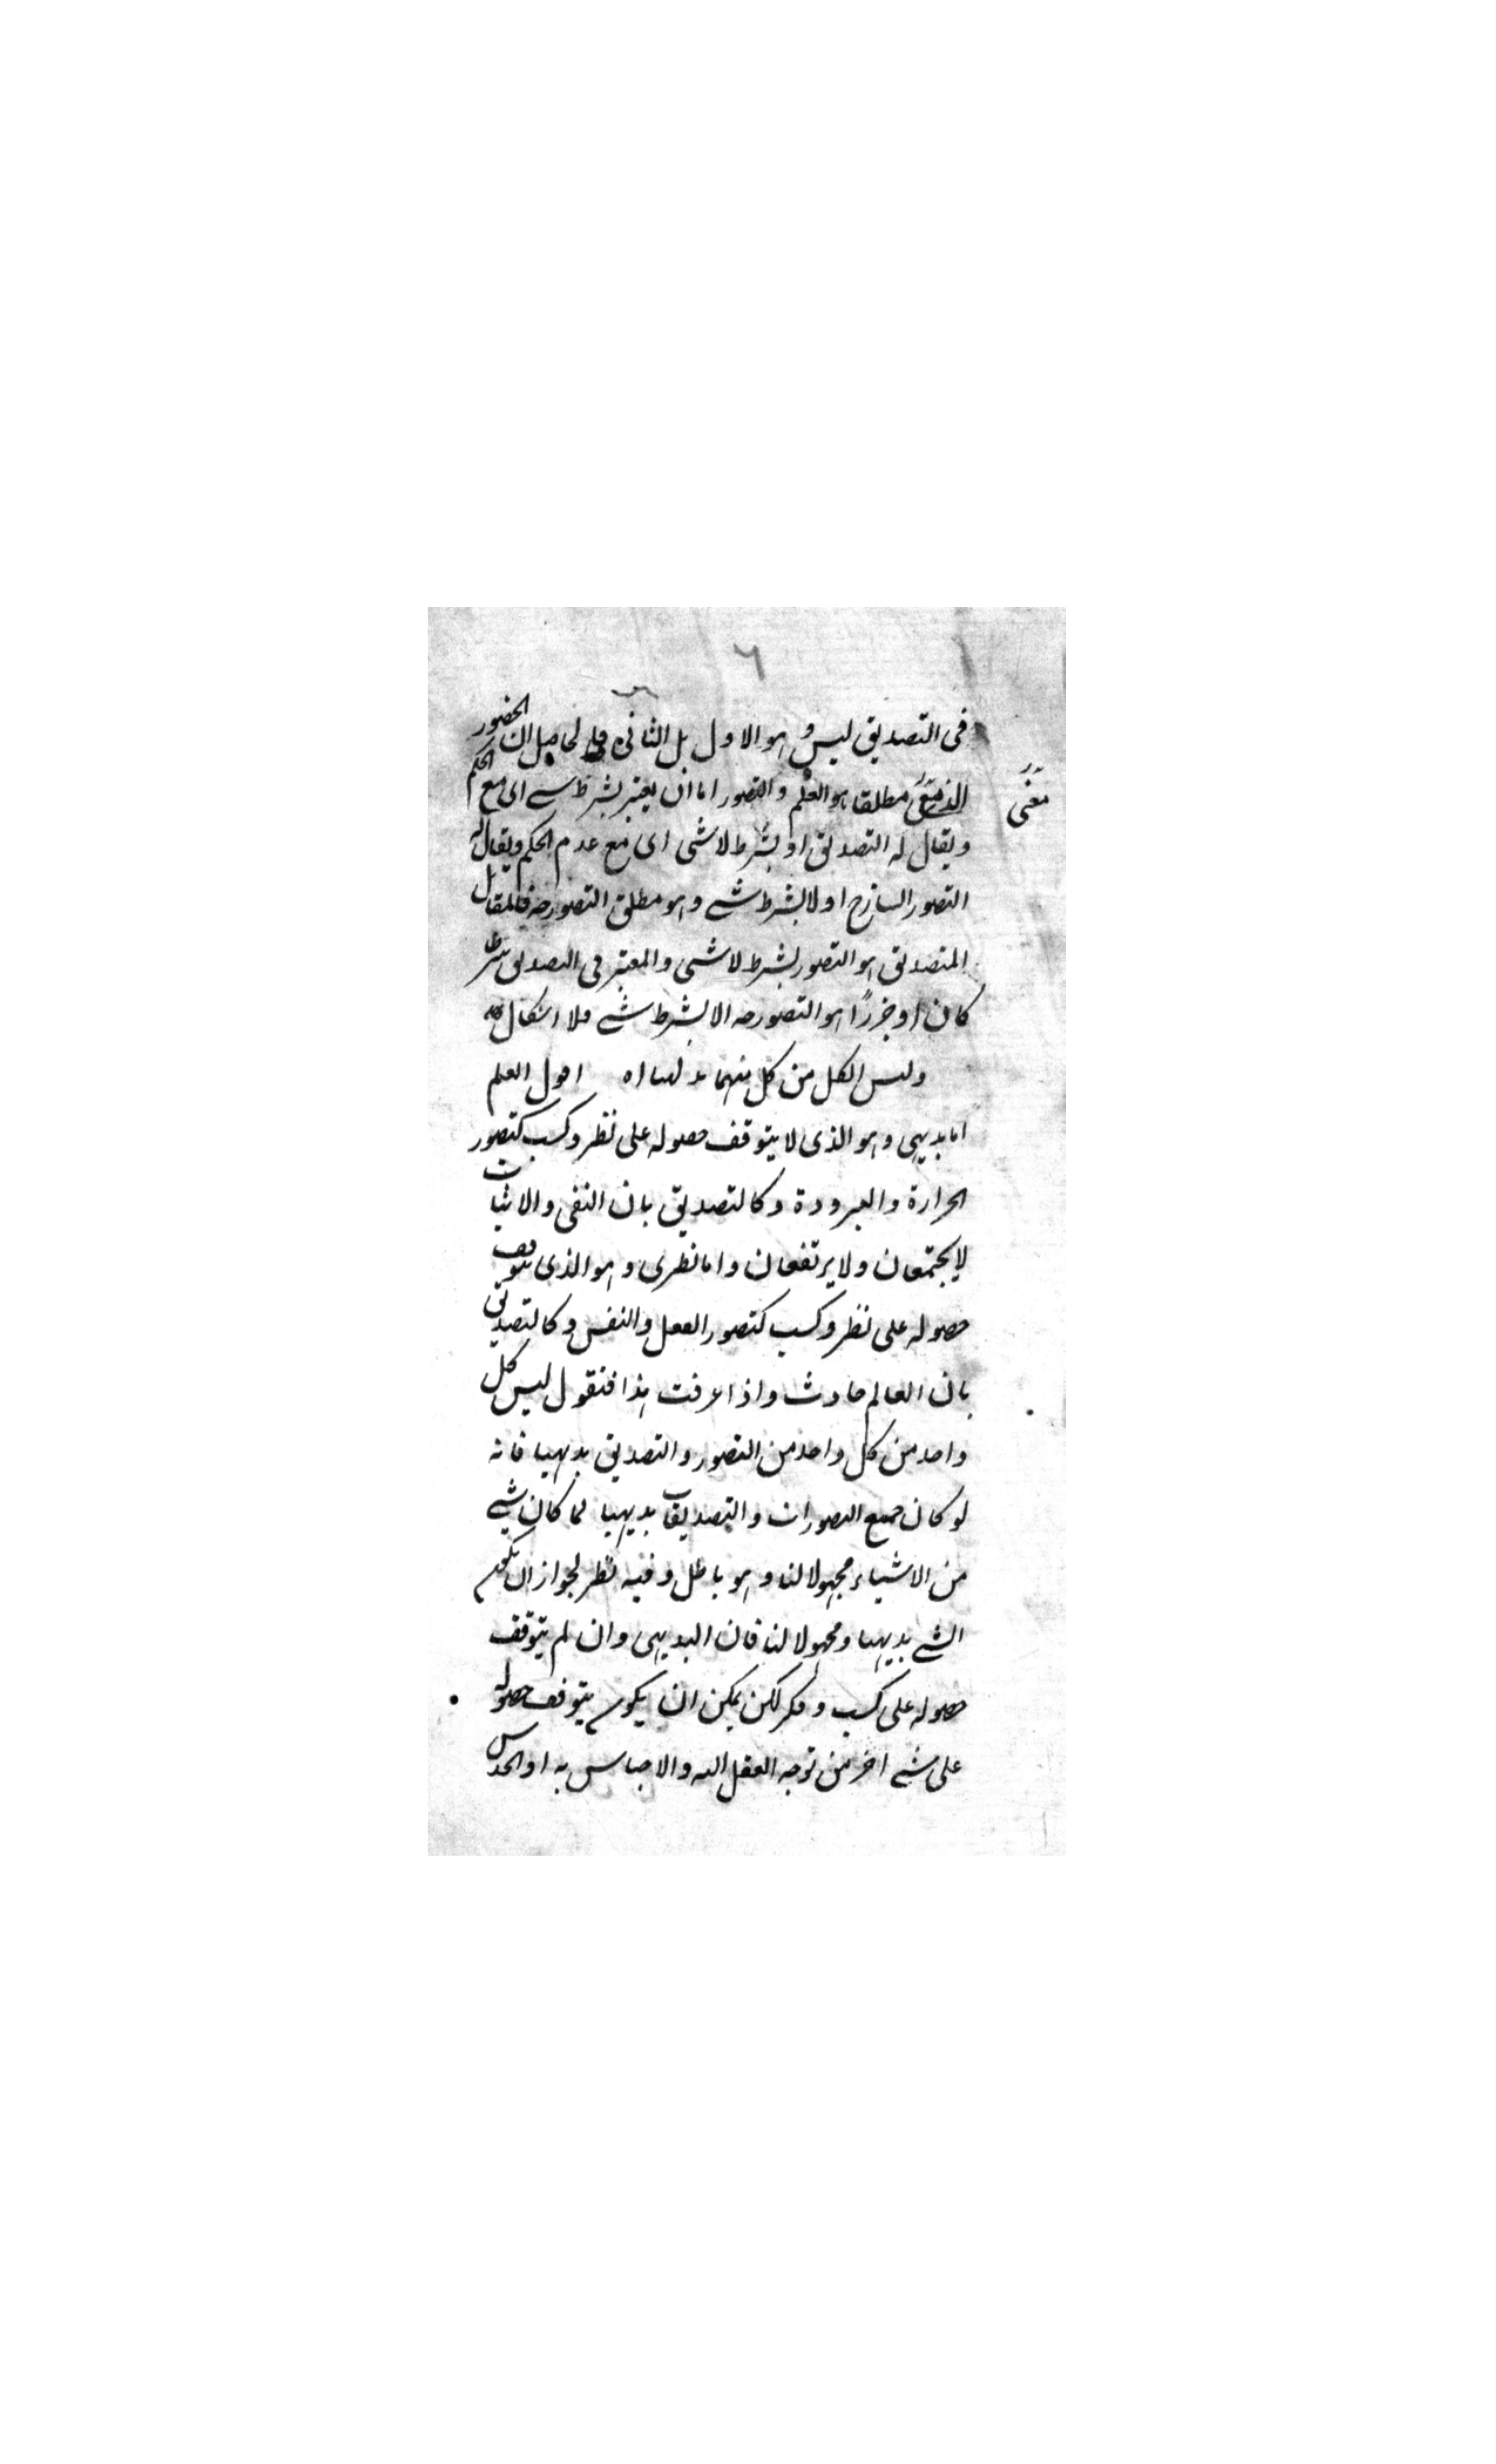 ٦
في التصديق ليس هو الاول بل الثاني والحاصل ان الحضور
الذهني مطلقا هو العلم والتصور اما ان يعتبر بشرط شي اى مع الحكم
معنى
ويقال له التصديق او بشرط لا شى اى مع عدم الحكم ويقال له
التصور الساذج او لا بشرط شي وهو مطلق التصور فالمقابل
للتصديق هو التصور بشرط لا شى والمعتبر فى التصديق شرطا
كان او جزءًا هو التصور لا بشرط شي فلا اشكال
وليس الكل من كل منهما بديهيا اه اقول العلم
اما بديهى وهو الذى لا يتوقف حصوله على نظر وكسب كتصور
الحرارة والبرودة وكالتصديق بان النفى والاثبات
لا يجتمعان ولا يرتفعان واما نظرى وهو الذى يتوقف
حصوله على نظر وكسب كتصور العقل والنفس وكالتصديق
بان العالم حادث واذا عرفت هذا فنقول ليس كل
واحد من كل واحد من التصور والتصديق بديهيا فانه
لو كان جميع التصورات والتصديقات بديهيا لما كان شي
من الاشياء مجهولا لنا وهو باطل وفيه نظر لجواز ان يكون
الشي بديهيا ومجهولا لنا فان البديهى وان لم يتوقف
حصوله على كسب وفكر لكن يمكن ان يكون يتوقف حصوله
على شي اخر من توجه العقل اليه والاحساس به او الحدس